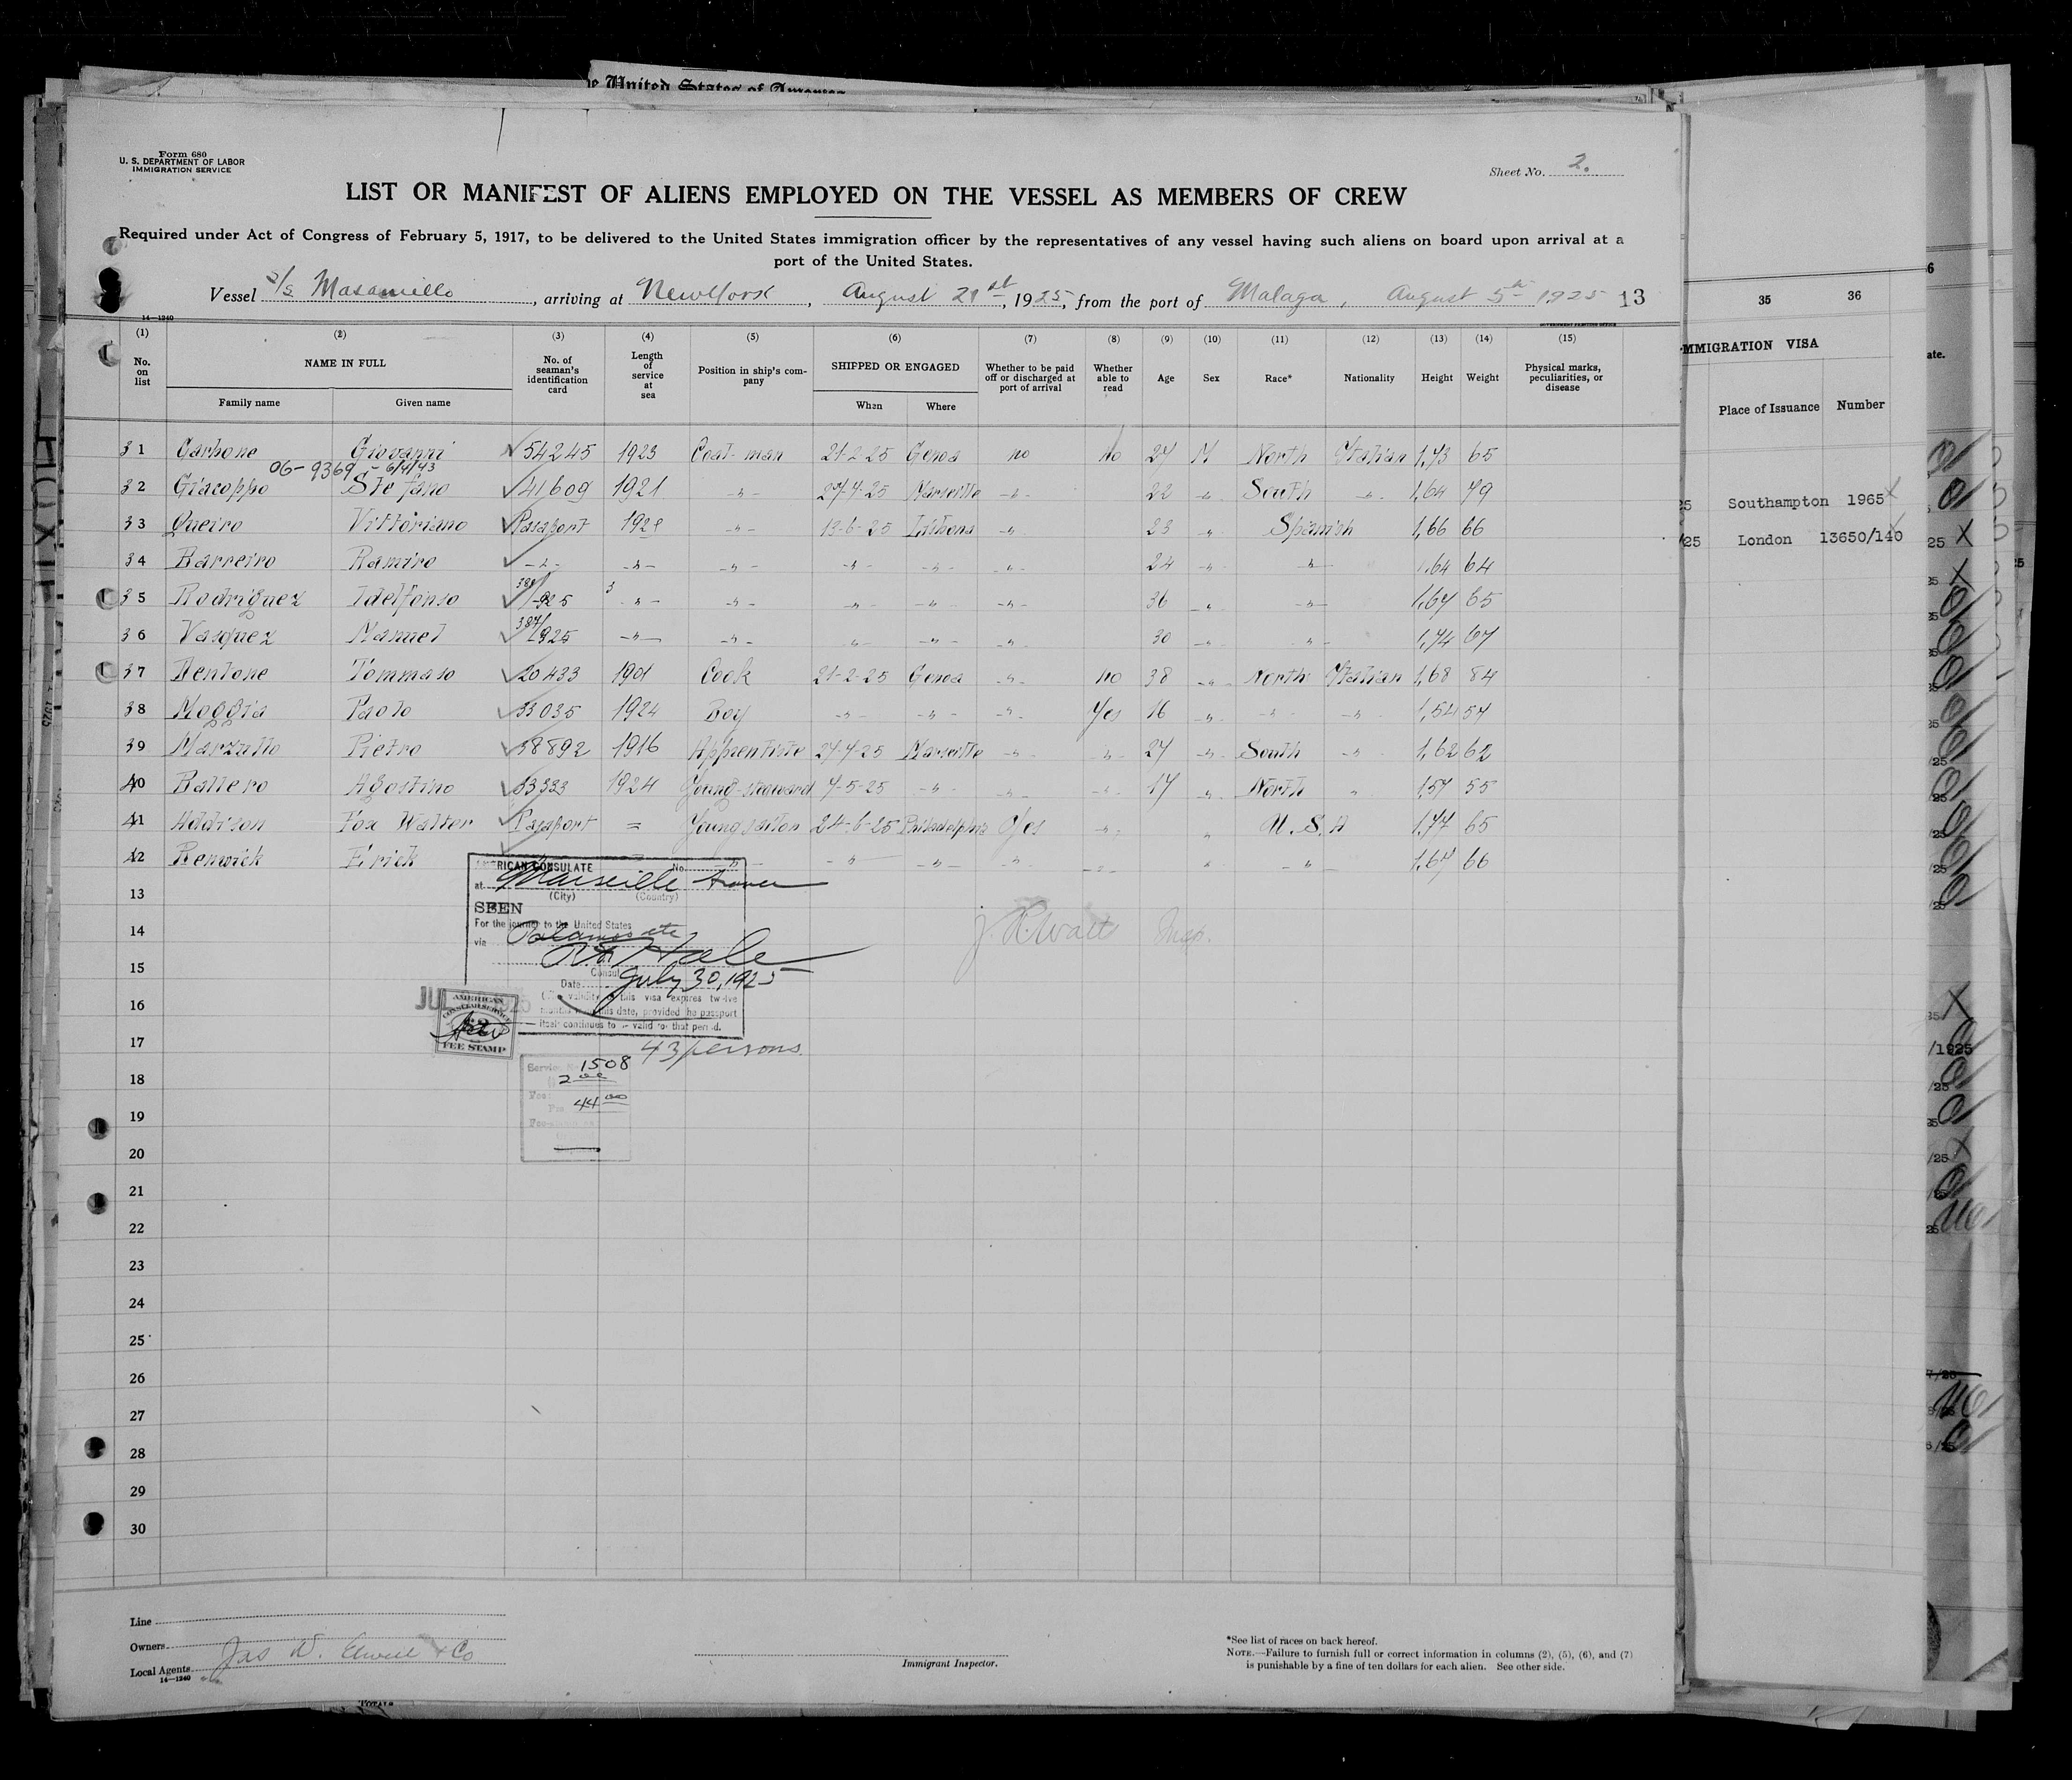 e United States of America
Form 680
U. S. DEPARTMENT OF LABOR
IMMIGRATION SERVICE
Sheet No. 2.
LIST OR MANIFEST OF ALIENS EMPLOYED ON THE VESSEL AS MEMBERS OF CREW
Required under Act of Congress of February 5, 1917, to be delivered to the United States immigration officer by the representatives of any vessel having such aliens on board upon arrival at a
port of the United States.
Vessel S/S Masaniello, arriving at New York, August 21st, 1925, from the port of Malaga, August 5th 1925 13
14—1240
(1) (2) (3) (4) (5) (6) (7) (8) (9) (10) (11) (12) (13) (14) (15)
No. on list NAME IN FULL No. of seaman's identification card Length of service at sea Position in ship's company SHIPPED OR ENGAGED Whether to be paid off or discharged at port of arrival Whether able to read Age Sex Race* Nationality Height Weight Physical marks, peculiarities, or disease
Family name Given name When Where
31 Garbone Giovanni 54245 1923 Coal-man 21-2-25 Genoa no No 27 M North Italian 1,73 65
06-9369 - 6/4/43
32 Giacoppo Stefano 41609 1921 -"- 27-4-25 Marseille -"- 22 -"- South -"- 1,64 79
33 Queiro Vittoriano Pasaport 192 -"- 13-6-25 Lisbona -"- 23 -"- Spanish 1,66 66
34 Barreiro Ramiro -"- -"- -"- -"- -"- -"- 24 -"- -"- 1,64 64
35 Rodriguez Idelfonso 925 3 -"- -"- -"- -"- -"- 36 -"- -"- 1,67 65
36 Vasquez Manuel 387/1925 -"- -"- -"- -"- -"- 30 -"- -"- 1,74 67
37 Dentone Tommaso 20433 1901 Cook 21-2-25 Genoa -"- no 38 -"- North Italian 1,68 84
38 Moggia Paolo 33035 1924 Boy -"- -"- -"- Yes 16 -"- -"- -"- 1,54 57
39 Marzullo Pietro 38892 1916 Apprentiste 27-4-25 Marseille -"- -"- 27 -"- South -"- 1,62 62
40 Ballero Agostino 33333 1924 Young-steward 7-5-25 -"- -"- -"- 17 -"- North " 1,57 55
41 Addison Fox Walter Pasaport = Young sailor 24-6-25 Philadelphia Yes -"- " U.S.A 1,77 65
42 Renwick Erick -"- -"- -"- -"- -"- -"- " -"- 1,67 66
13
14
15
16
17
18
19
20
21
22
23
24
25
26
27
28
29
30
AMERICAN CONSULATE No.
at Marseille France
(City) (Country)
SEEN
For the journey to the United States
via
Hale
Consul
Date July 30, 1925
validity this visa expires twelve
months this date, provided he passport
itself continues to valid for that period.
AMERICAN
CONSULAR SERVICE
$2
FEE STAMP
43 persons
Service No. 1508
2
Fee 44.00
Line
Owners
Local Agents Jas W. Elwell & Co
14—1240
Immigrant Inspector.
*See list of races on back hereof.
NOTE.—Failure to furnish full or correct information in columns (2), (5), (6), and (7)
is punishable by a fine of ten dollars for each alien. See other side.
35 36
IMMIGRATION VISA
Place of Issuance Number
25 Southampton 1965
/25 London 13650/140
ate.
/1925
TOTALS